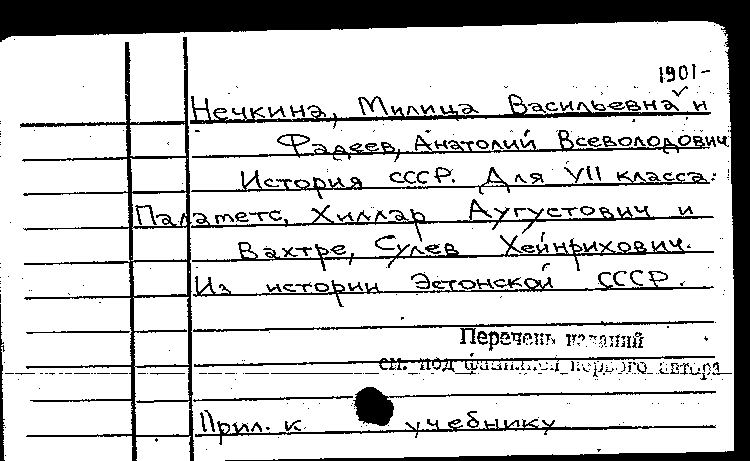 1901-
Нечкина, Милица Васильевна и
Фадеев, Анатолий Всеволодович
История СССР. Для VII класса.
Паламетс, Хиллар Аугустович и
Вахтре, Сулев Хейнрихович.
Из истории Эстонской СССР.
Перечень изданий
см. под фамилией первого автора
Прил. к учебнику